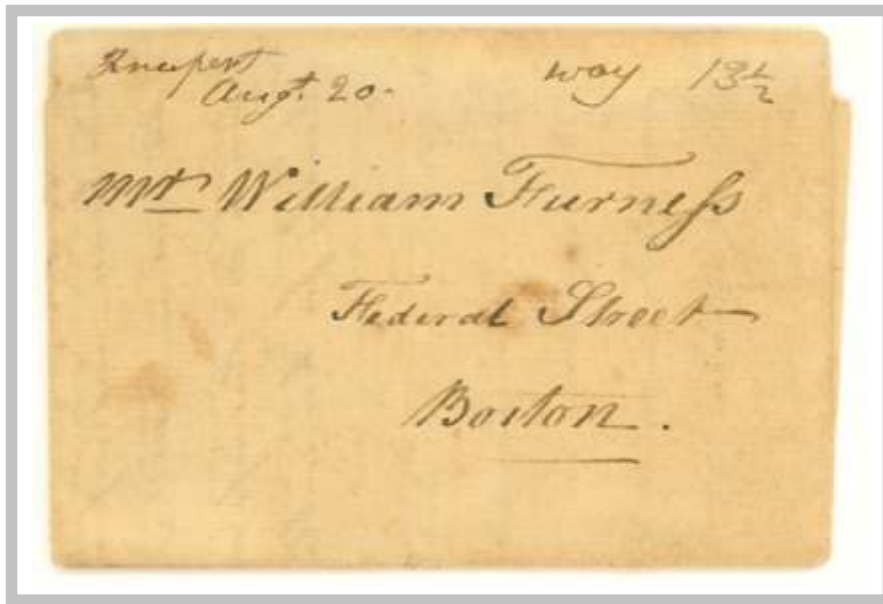 Augt. 20. way 13 1/2
Mr. William Furneſs
Federal Street
Boston.